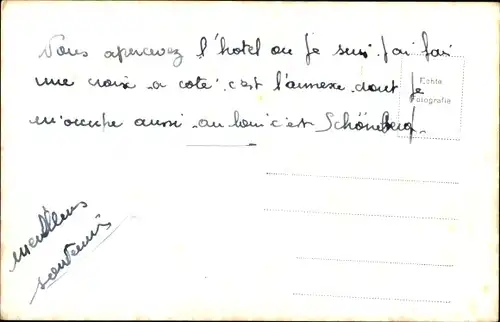 Vous apercevez l'hotel ou je suis. J'ai fais
une croix a coté. c'est l'annexe dont je
m'occupe aussi au loin c'est Schöneberg.
Echte
Fotografie
meilleurs
souvenirs